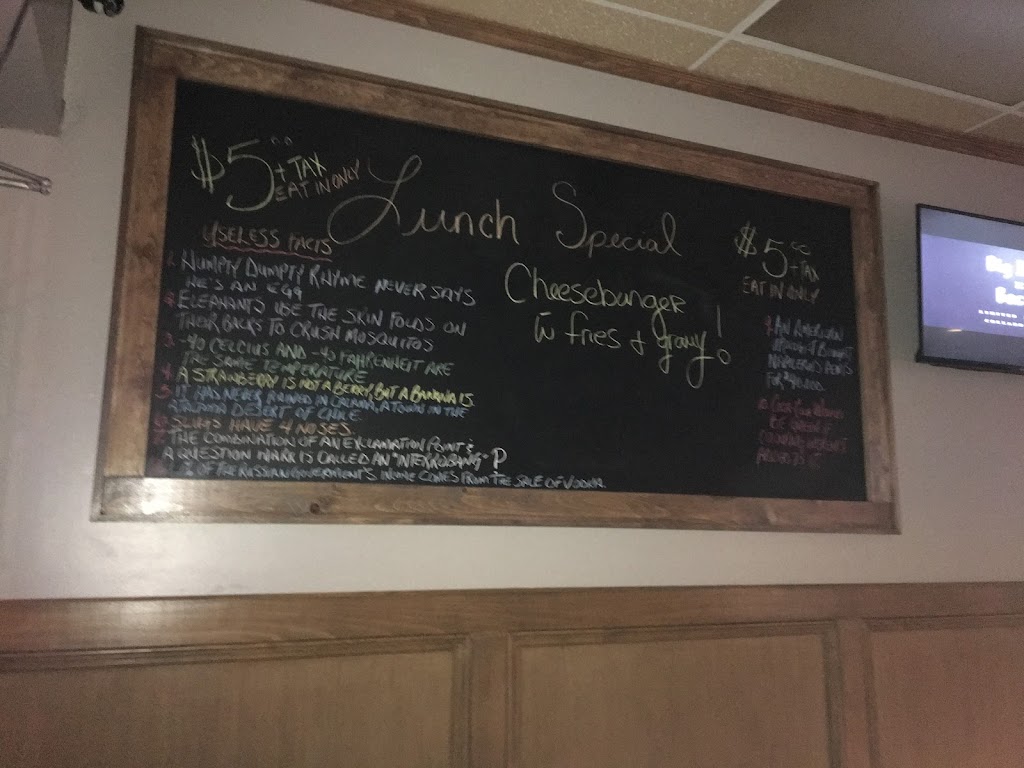 $5.00
+ TAX
EAT IN ONLY
Lunch Special
Cheeseburger
w fries + gravy!
$5
+ TAX
EAT IN ONLY
USELESS FACTS
1. HUMPTY DUMPTY RHYME NEVER SAYS
HE'S AN EGG
2. ELEPHANTS USE THE SKIN FOLDS ON
THEIR BACKS TO CRUSH MOSQUITOS
3. -40 CELCIUS AND -40 FAHRENHEIT ARE
THE SAME TEMPERATURE
4. A STRAWBERRY IS NOT A BERRY, BUT A BANANA IS.
5. IT HAS NEVER RAINED IN CALAMA, A TOWN IN THE
ATACAMA DESERT OF CHILE
6. SLUGS HAVE 4 NOSES.
7. THE COMBINATION OF AN EXCLAMATION POINT &
A QUESTION MARK IS CALLED AN "INTERROBANG"
% OF THE RUSSIAN GOVERNMENT'S INCOME COMES FROM THE SALE OF VODKA.
9 AN AMERICAN
AIRPORT BOUGHT
FOR